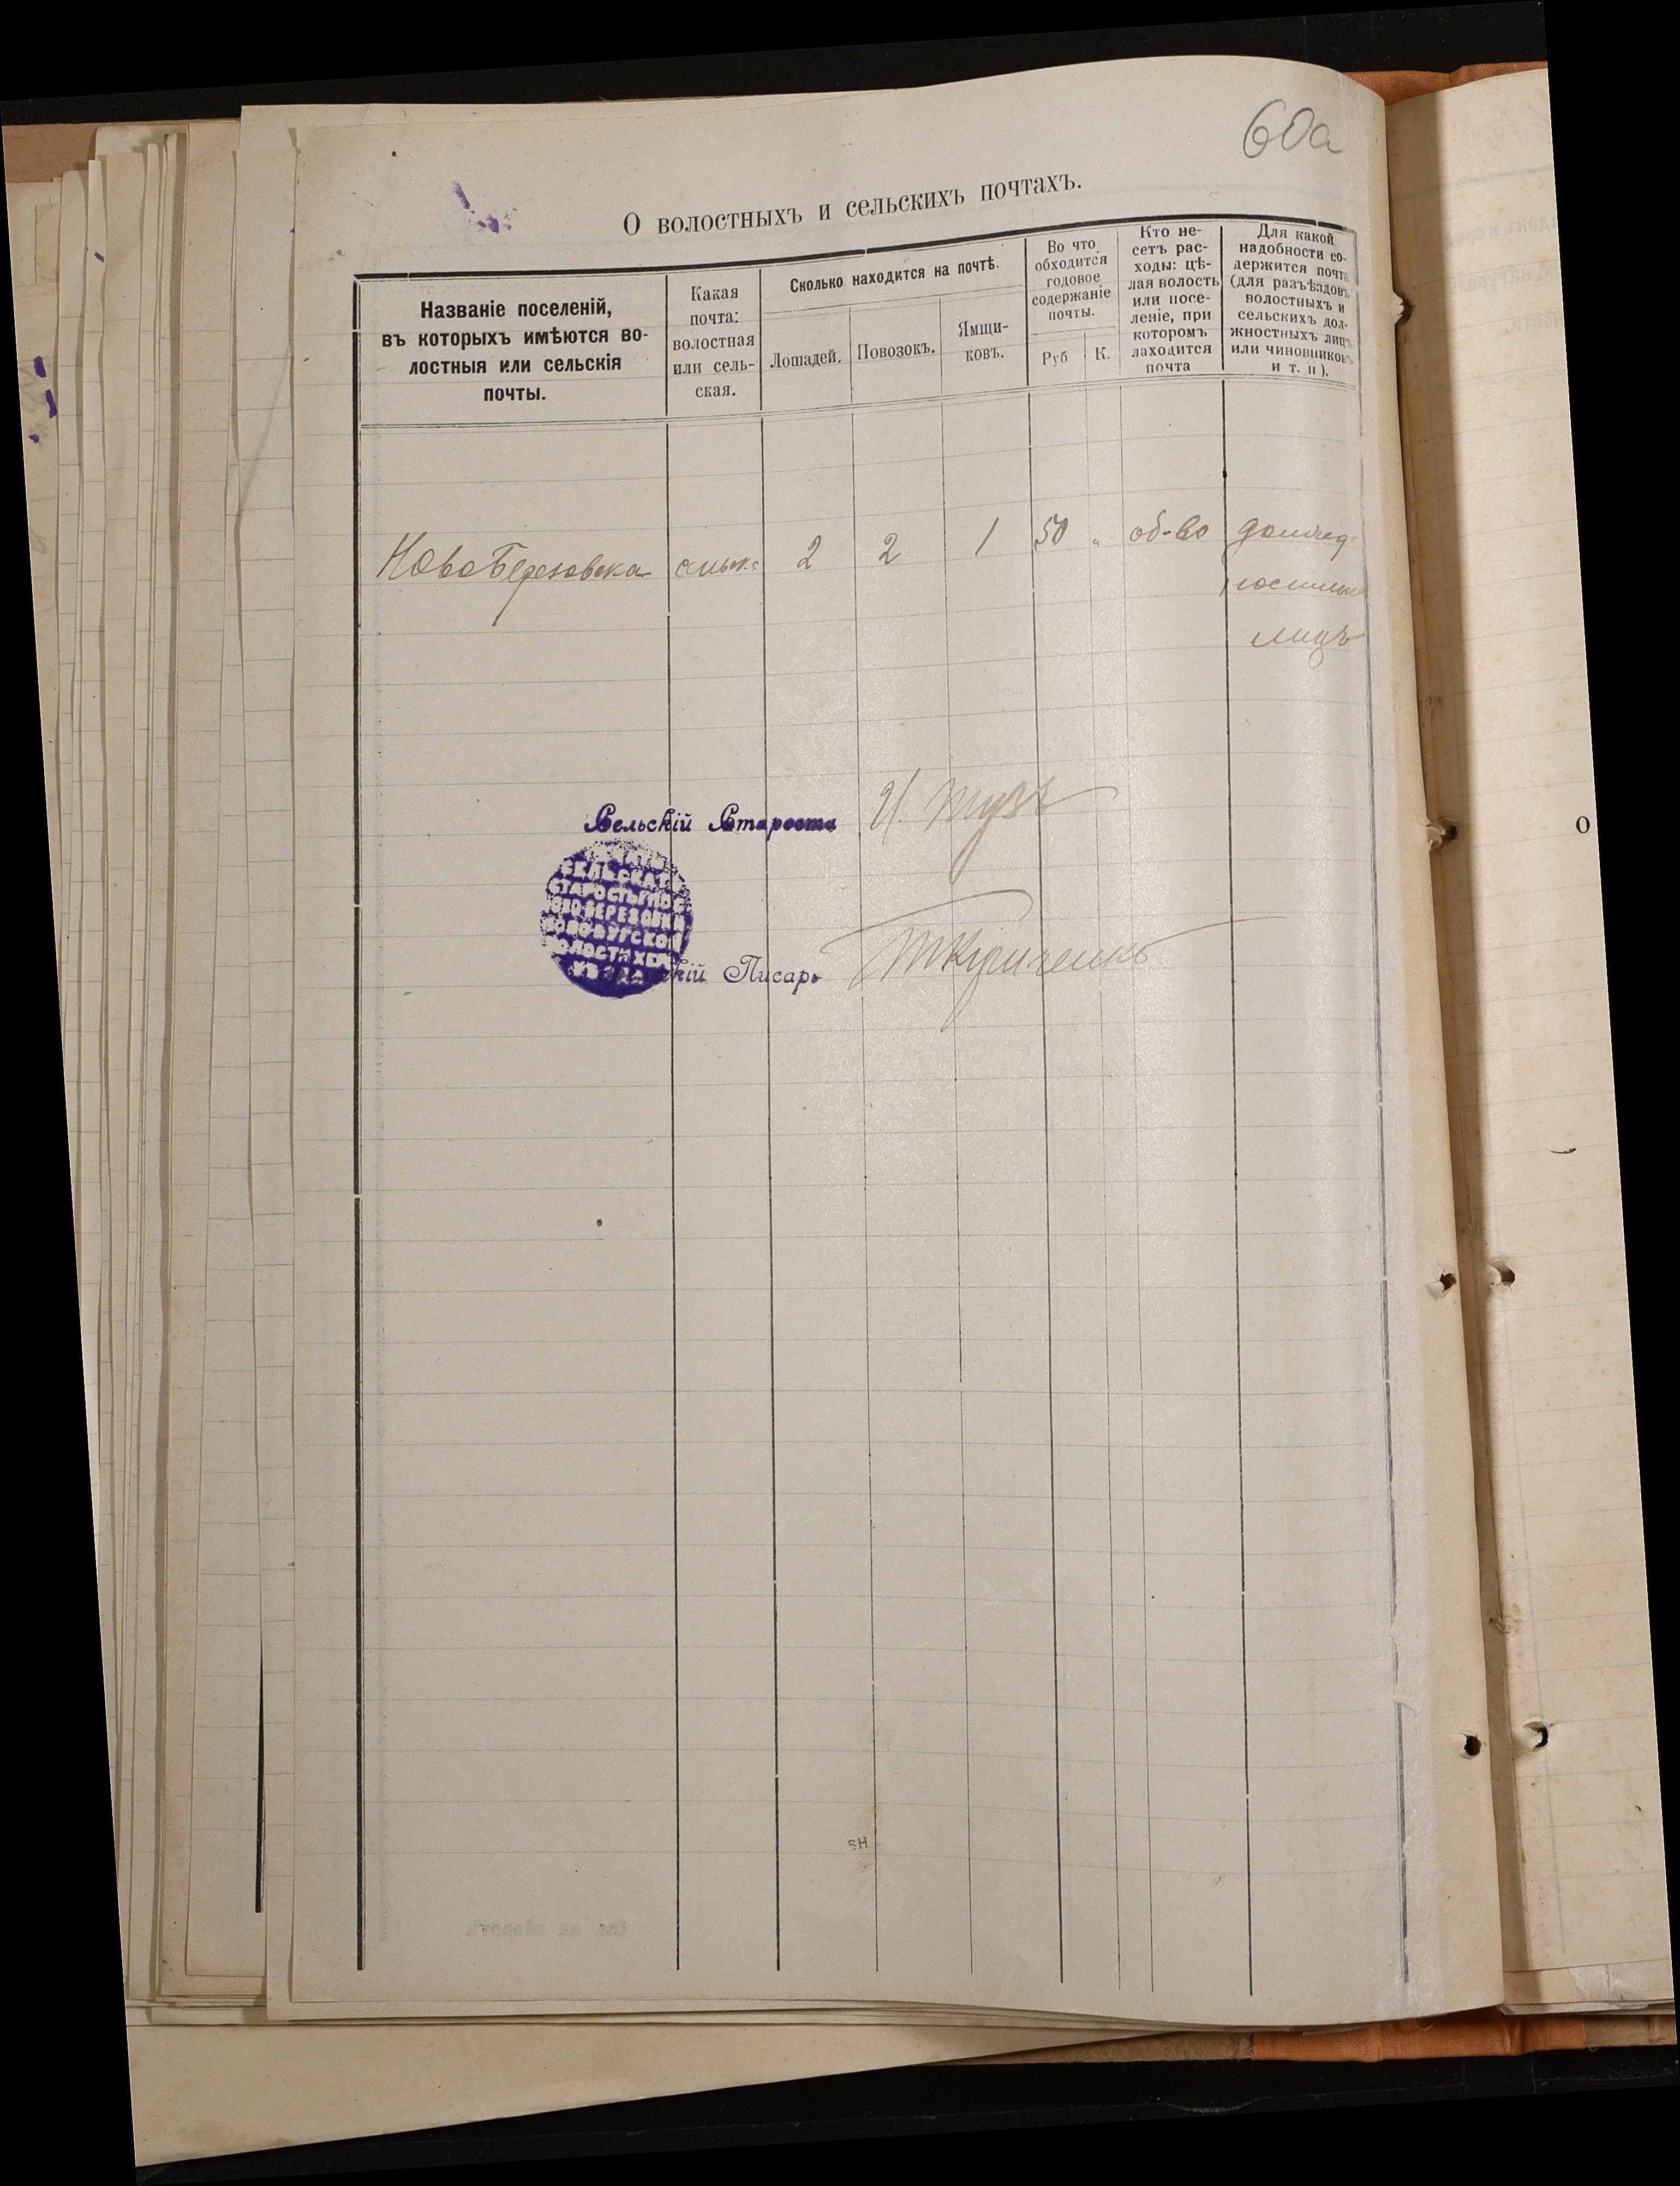 60а
О волостныхъ и сельскихъ почтахъ.
Названіе поселеній,
въ которыхъ имѣются во-
лостныя или сельскія
почты.
Какая
почта:
волостная
или сель-
ская.
Сколько находится на почтѣ.
Лошадей.
Повозокъ.
Ямщи-
ковъ.
Во что
обходится
годовое
содержаніе
почты.
Руб
К.
Кто не-
сетъ рас-
ходы: цѣ-
лая волость
или посе-
леніе, при
котором
находится
почта
Для какой
надобности со-
держится почта
(для разъѣздовъ
волостныхъ и
сельскихъ дол-
жностныхъ лицъ
или чиновниковъ
и т. п ).
НовоБерезовска сельск. 2 2 1 50 „ об-во
лицъ
Сельскій Староста И. Тузъ
СЕЛЬСКАГ
СТАРОСТЫ ПОС
НОВО БЕРЕЗОВКИ
НОВОБУГСКОЙ
ВОЛОСТИ ХЕР
Писарь